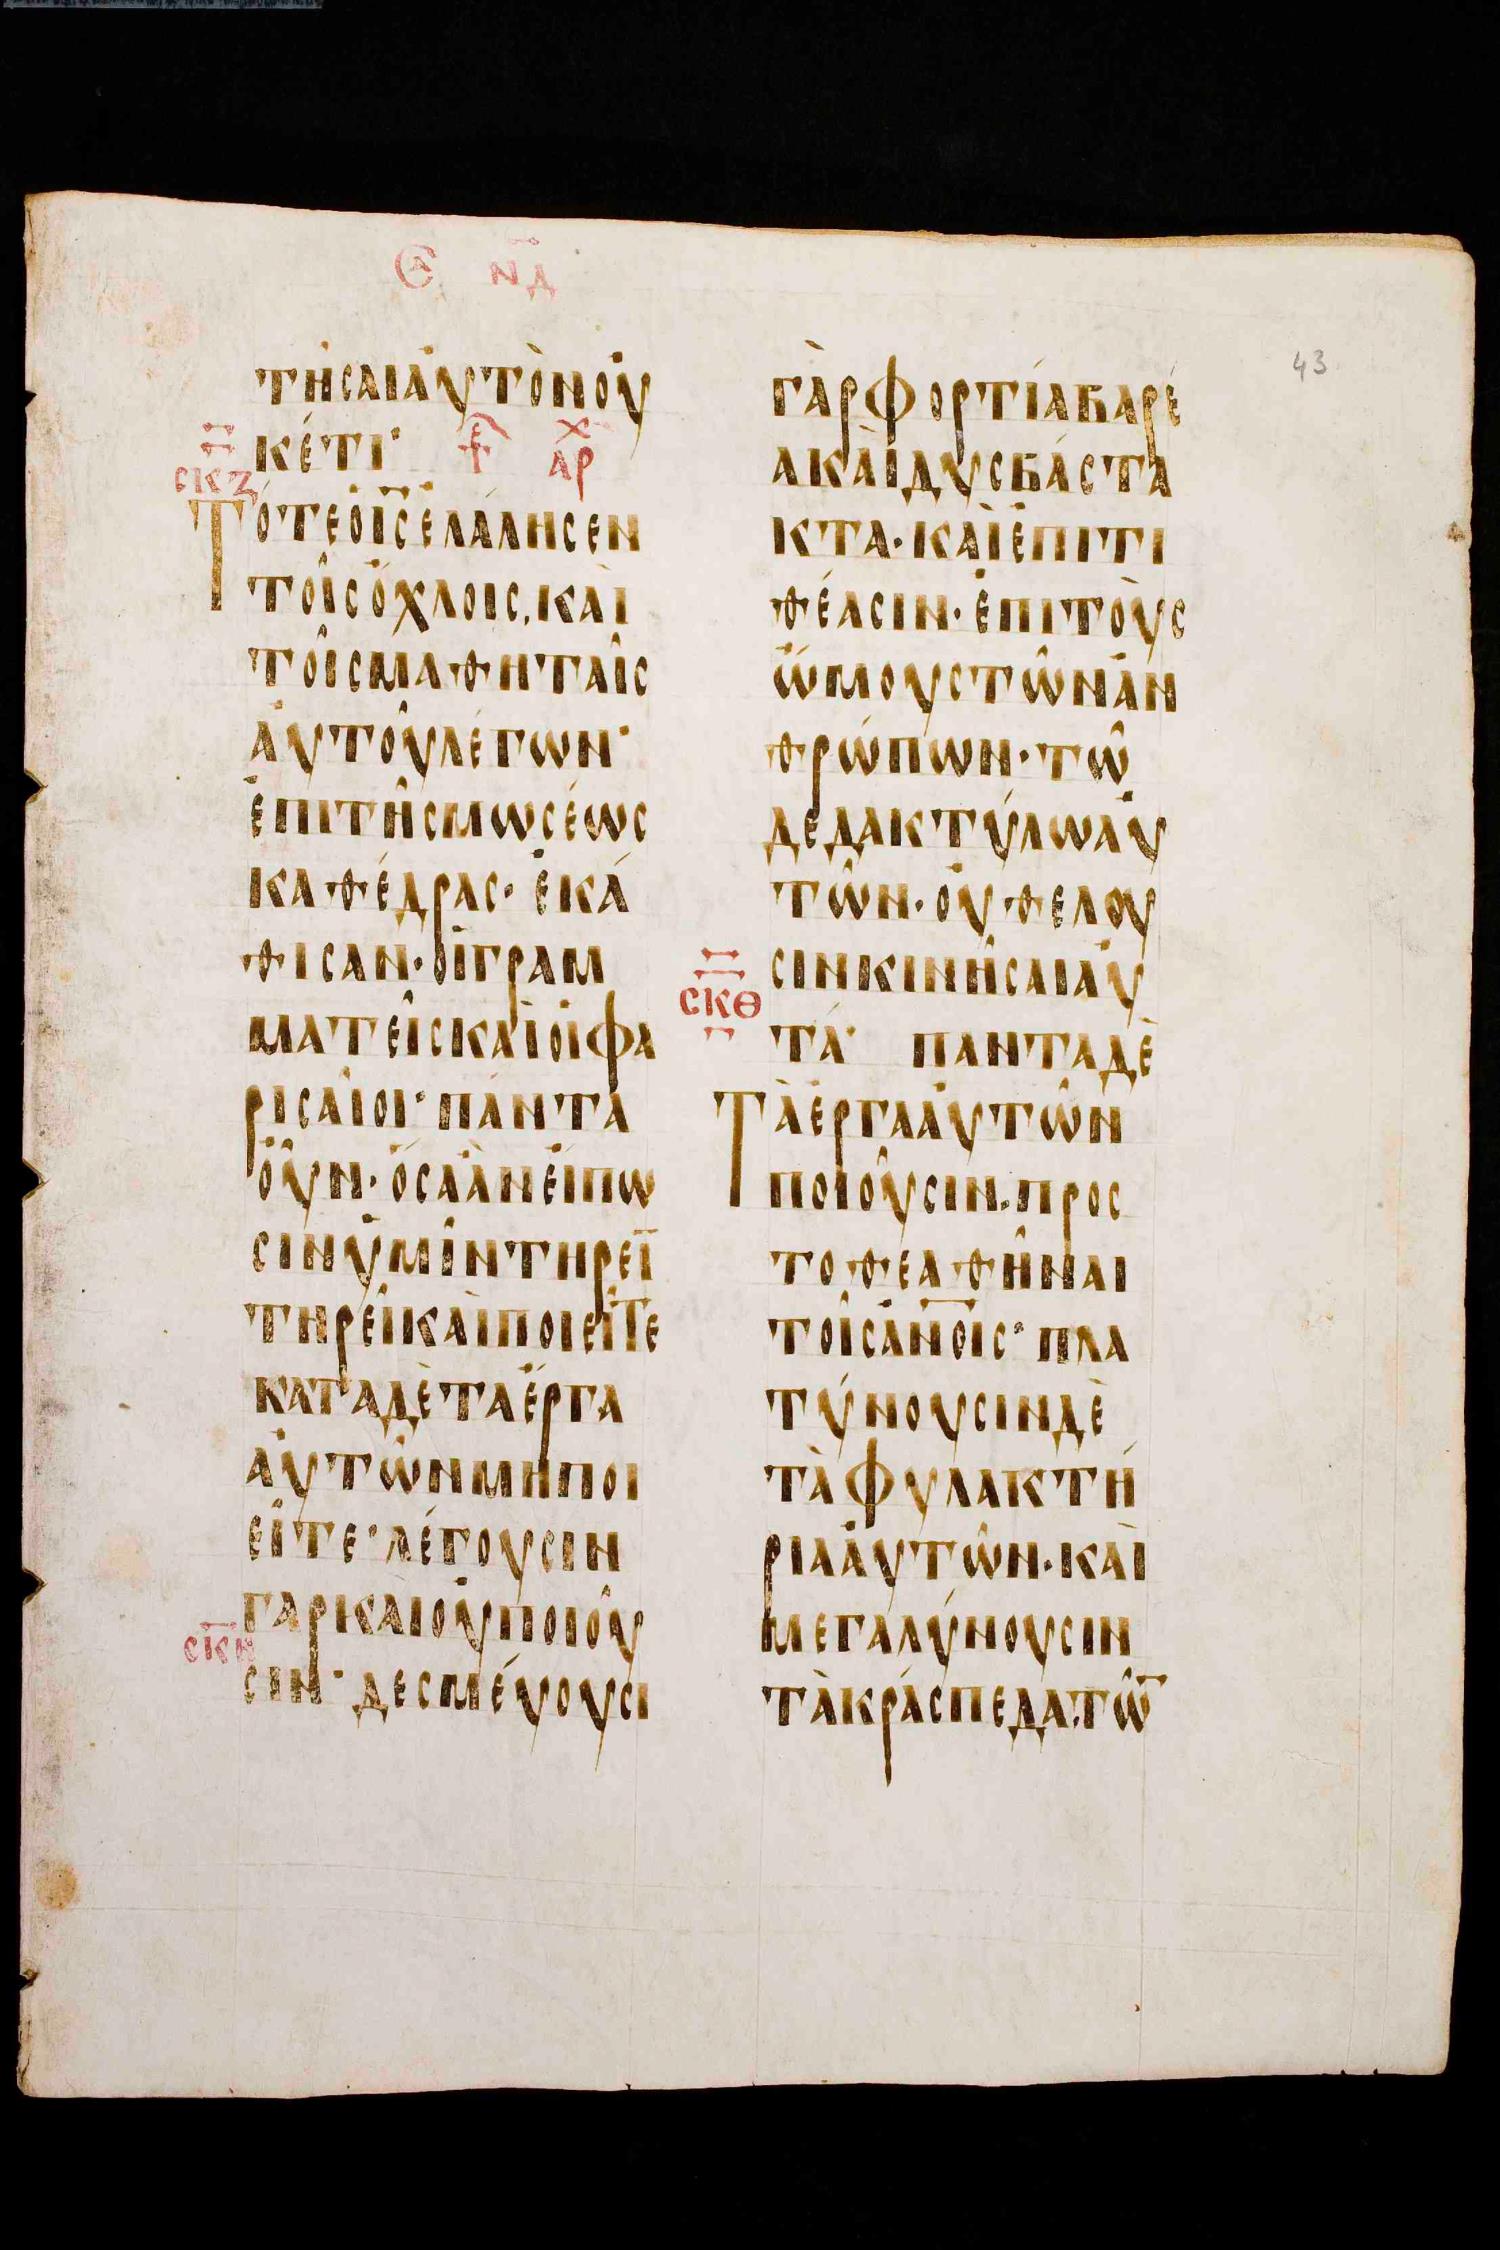 ΝΔ
43
ΤΗ͂ΣΑΙΑΥΤῸΝΟΥ
ΚΈΤΙ·
ΑΡ
ΣΚΖ
ΤΌΤΕΟΙ̅Σ̅ΕΛΆΛΗΣΕΝ
ΤΟΙ͂ΣὌΧΛΟΙΣ, ΚΑῚ
ΤΟΙ͂ΣΜΑΘΗΤΑΙ͂Σ
ΑΥΤΟΥ͂ΛΈΓΩΝ·
ἘΠΙΤΗ͂ΣΜΩΣΈΩΣ
ΚΑΘΈΔΡΑΣ· ἘΚΆ
ΘΙΣΑΝ· ΟΙΓΡΑΜ
ΜΑΤΕΙ͂ΣΚΑῚΟΙΦΑ
ΡΙΣΑΙ͂ΟΙ· ΠΆΝΤΑ
ΟΥ͂Ν· ὍΣΑἊΝΕΊΠΩ
ΣΙΝΥΜΙ͂ΝΤΗΡΕΙ̅
ΤΗΡΕΙ͂ΚΑῚΠΟΙΕΙ͂ΤΕ
ΚΑΤΑΔῈΤΑΈΡΓΑ
ΑΥΤΩ͂ΝΜΗΠΟΙ
ΕΙ͂ΤΕ· ΛΈΓΟΥΣΙΝ
ΓΑΡΚΑΙΟΥΠΟΙΟΥ͂
ΣΚΗ
ΣΙΝ· ΔΕΣΜΈΥΟΥΣΙ
ΓᾺΡΦΟΡΤΊΑΒΑΡΈ
ΑΚΑῚΔΥΣΒΆΣΤΑ
ΚΤΑ· ΚΑῚἘΠΙΤΙ
ΘΈΑΣΙΝ· ἘΠΙΤΟῪΣ
ὬΜΟΥΣΤΩ͂ΝἈΝ
ΘΡΏΠΩΝ· ΤΩ͂
ΔΕΔΑΚΤΎΛΩΑΥ
ΤΩ͂Ν· ΟΥΘΕΛΟΥ
ΣΙΝΚΙΝΗ͂ΣΑΙΑΥ
ΣΚΘ
ΤΆ· ΠΑΝΤΑΔῈ
ΤᾺΈΡΓΑΑΥΤΩ͂Ν
ΠΟΙΟΥ͂ΣΙΝ. ΠΡΟΣ
ΤΟΘΕΑΘΗ͂ΝΑΙ
ΤΟΙ͂ΣΑΝ̅Ο̅ΙΣ· ΠΛΑ
ΤΎΝΟΥΣΙΝΔῈ
ΤᾺΦΥΛΑΚΤΉ
ΡΙΑΑΥΤΩ͂Ν· ΚΑῚ
ΜΕΓΑΛΎΝΟΥΣΙΝ
ΤᾺΚΡΆΣΠΕΔΑ. ΤΩ̅͂